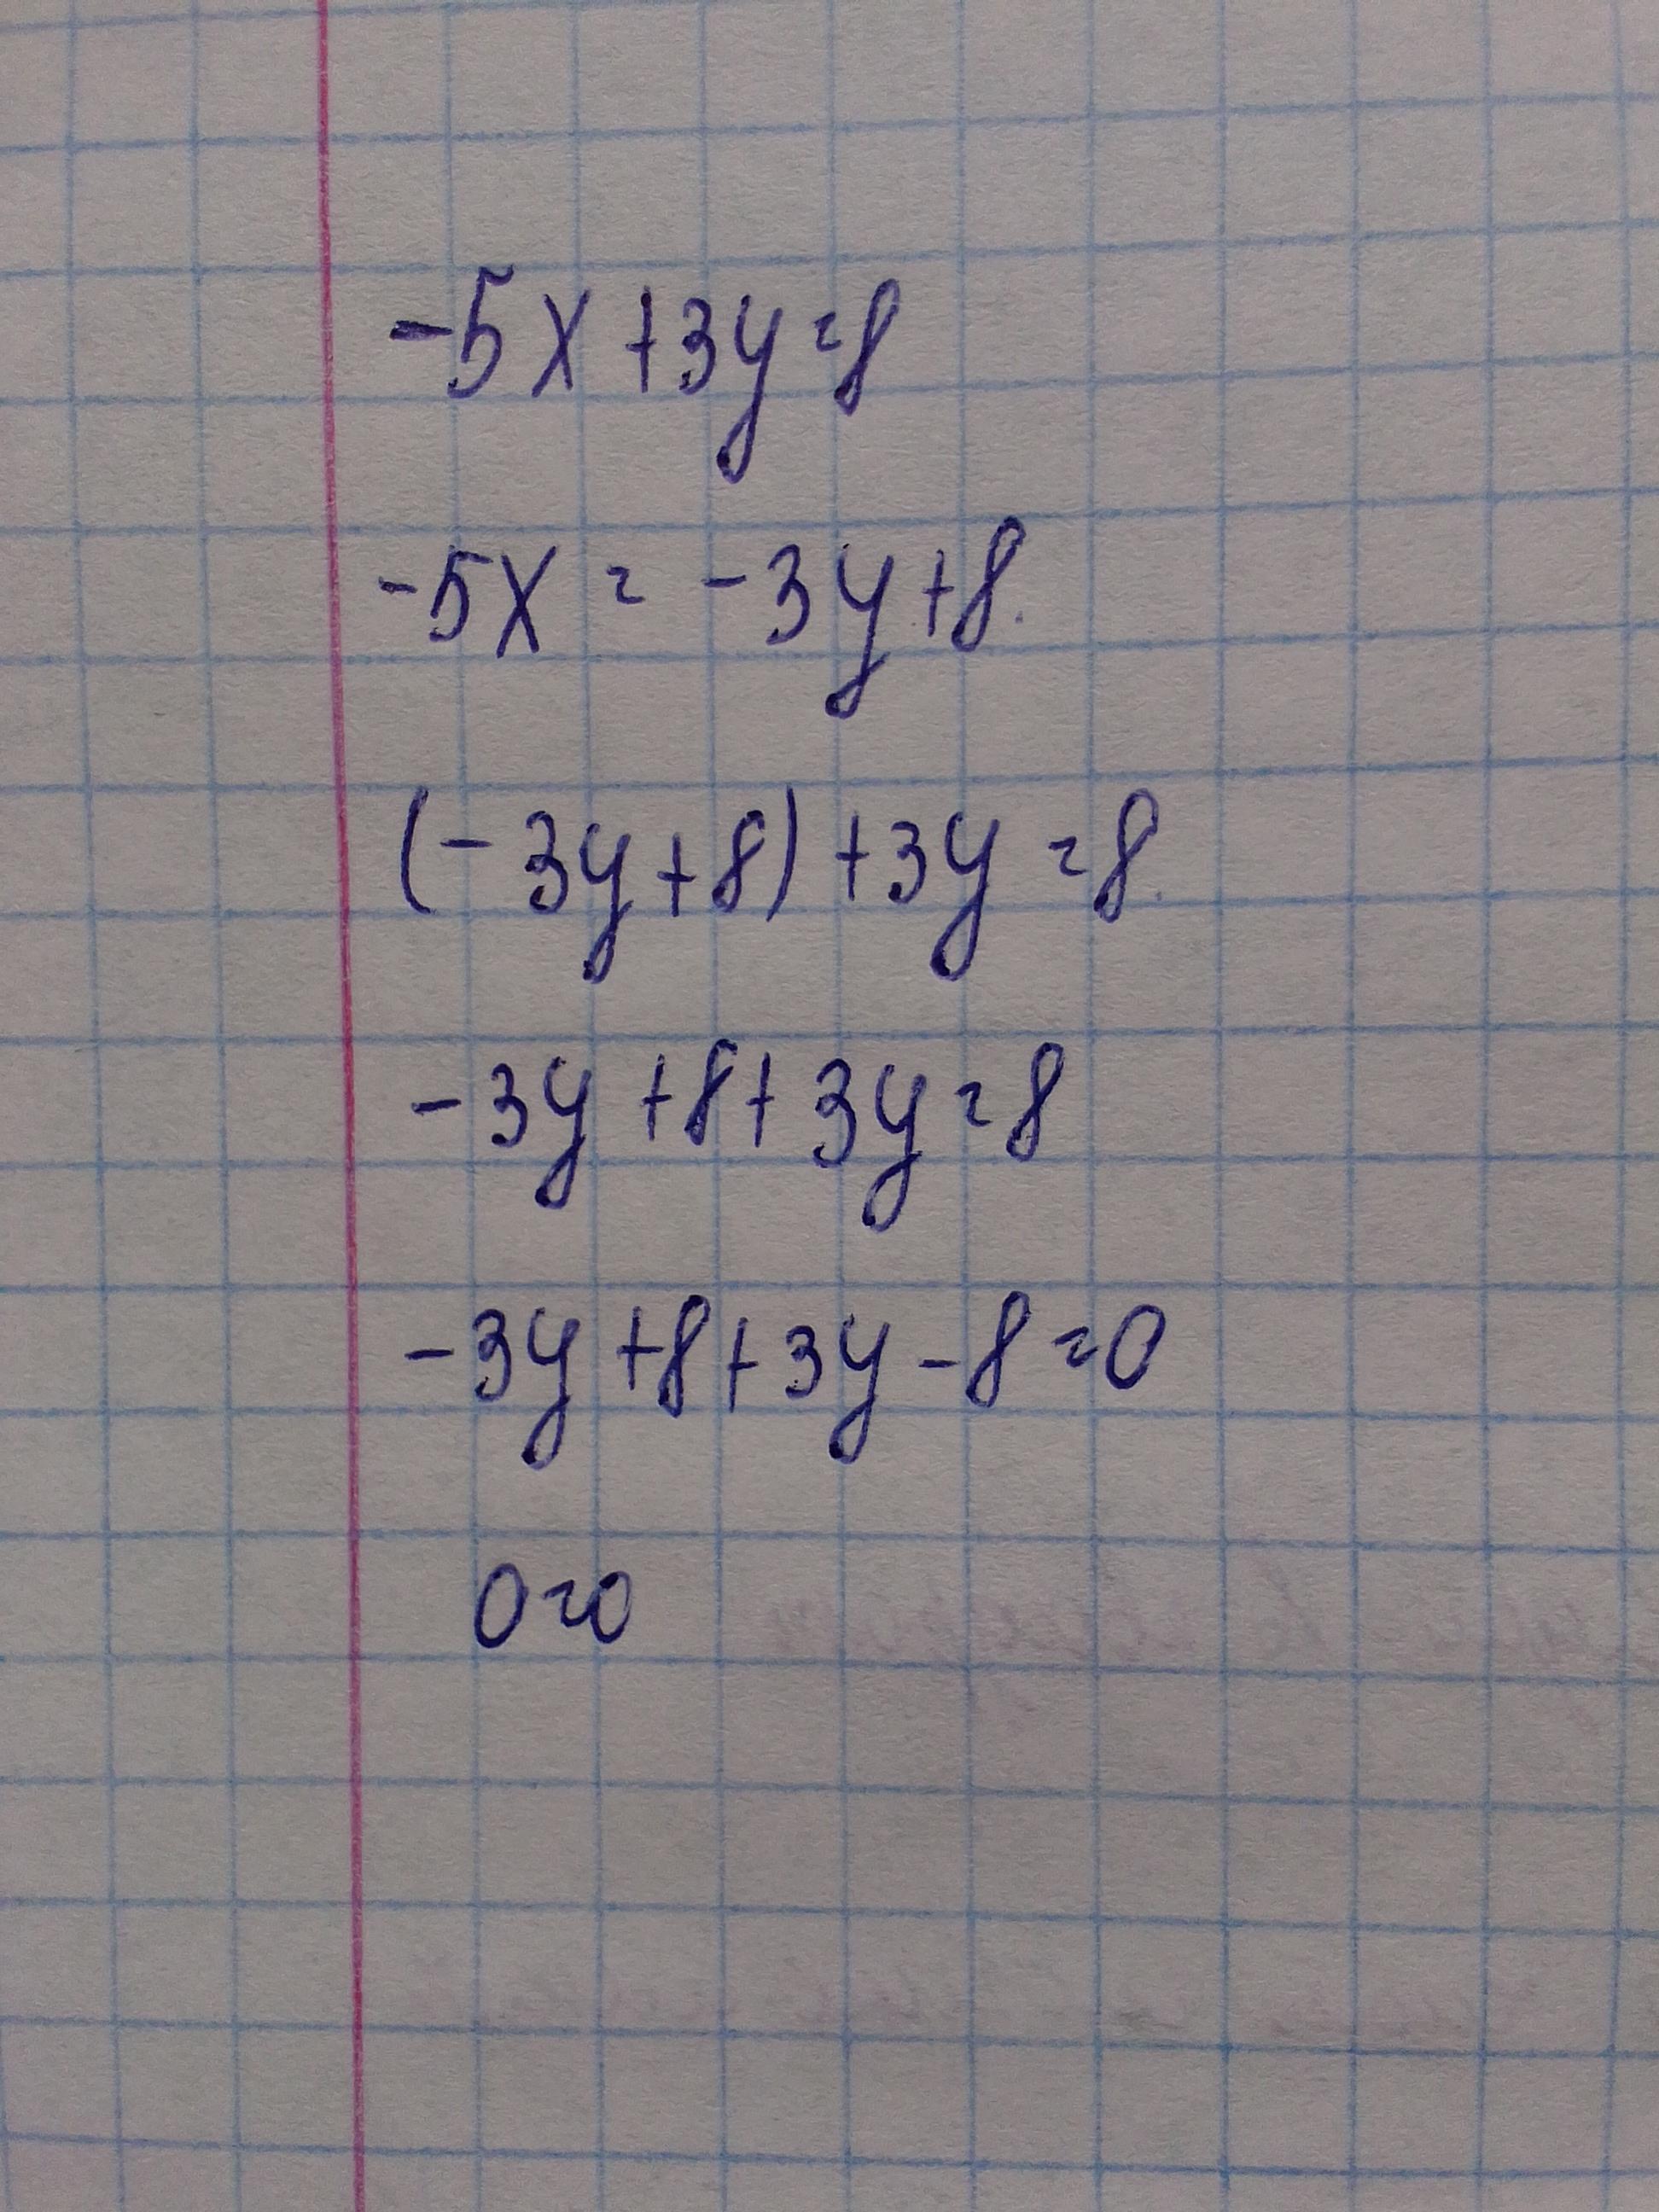 -5x+3y=8
-5x = -3y+8.
(-3y+8)+3y=8.
-3y+8+3y=8
-3y+8+3y-8=0
0=0